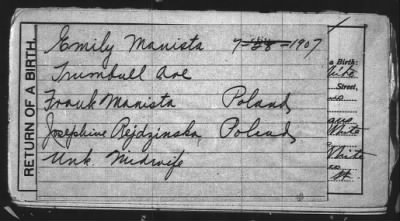 RETURN OF A BIRTH.
Emily Manista 7-28-1907
Trumbull Ave
Frank Manista Poland
Josephine Rejdzinska, Poland
Unk. Midwife
a Birth:
White
Street,
White
White